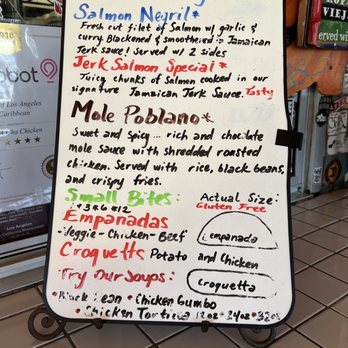 Salmon Negril*
Fresh cut filet of Salmon w/ garlic &
curry. Blackened & smothered in Jamaican
Jerk sauce! Served w/ 2 sides
Jerk Salmon Special*
Juicy chunks of Salmon cooked in our
signature Jamaican Jerk Sauce. Tasty
Mole Poblano*
Sweet and spicy... rich and chocolate
mole sauce with shredded roasted
chicken. Served with rice, black beans,
and crispy fries.
Small Bites:
Actual Size:
Gluten Free
Empanadas
Veggie-Chicken-Beef
empanada
Croquetts Potato and Chicken
Try Our Soups:
croquetta
Black Bean • Chicken Gumbo
• Chicken Tortilla 12oz • 24oz • 32oz
Los Angeles
Caribbean
Chicken